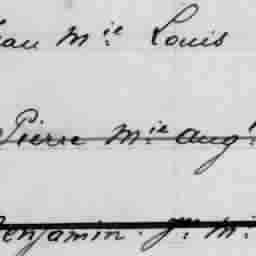 eau Mie Louis
Pierre Mie Augt
Benjamin Jn M.